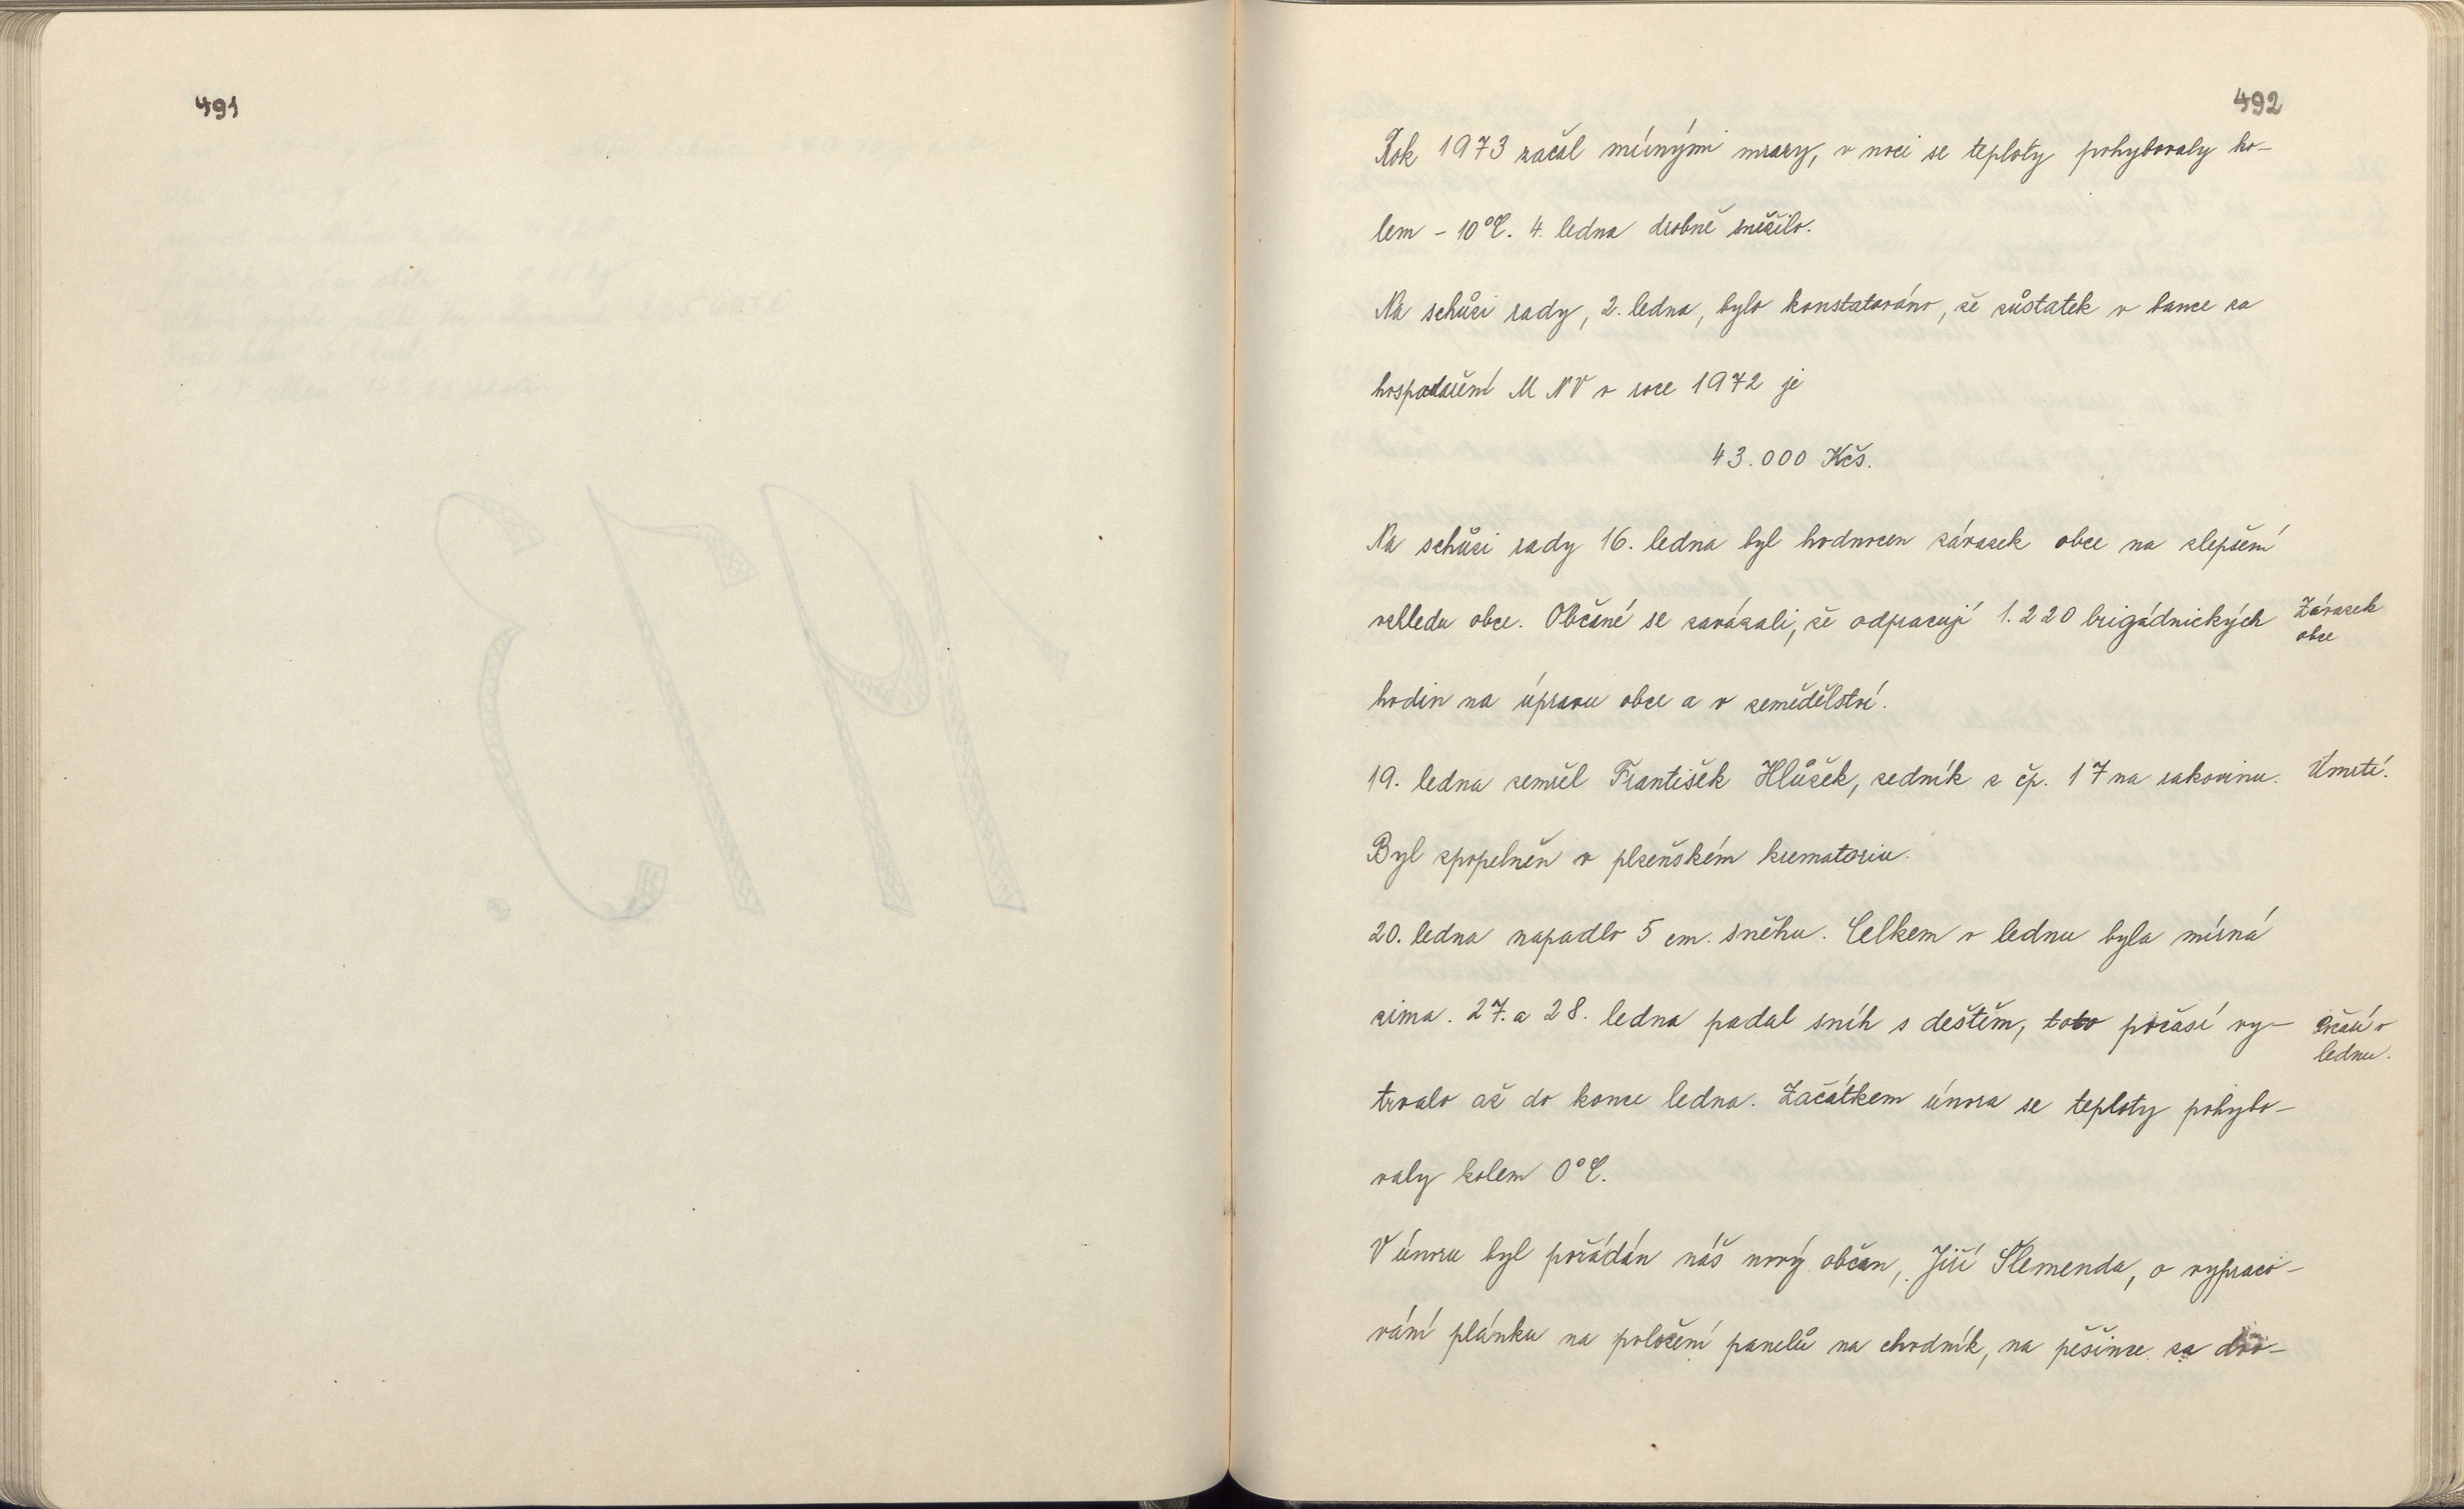 491
492
Rok 1973 začal mírnými mrazy, v noci se teploty pohybovaly ko-
lem - 10°C. 4. ledna drobně sněžilo.
Na schůzi rady, 2. ledna, bylo konstatováno, že zůstatek v bance za
hospodaření M N V v roce 1972 je
43.000 Kčs.
Na schůzi rady 16. ledna byl hodnocen závazek obce na zlepšení
vzhledu obce. Občané se zavázali, že odpracují 1.220 brigádnických
Závazek
obce
hodin na úpravu obce a v zemědělství.
19. ledna zemřel František Hlůžek, zedník z čp. 17 na rakovinu.
Úmrtí.
Byl zpopelněn v plzeňském krematoriu.
20. ledna napadlo 5 cm. sněhu. Celkem v lednu byla mírná
zima. 27. a 28. ledna padal sníh s deštěm, toto počasí vy-
Počasí v
lednu.
trvalo až do konce ledna. Začátkem února se teploty pohybo-
valy kolem 0°C.
V únoru byl požádán náš nový občan, Jiří Slemenda, o vypraco-
vání plánku na položení panelů na chodník, na pěšince za dvo-